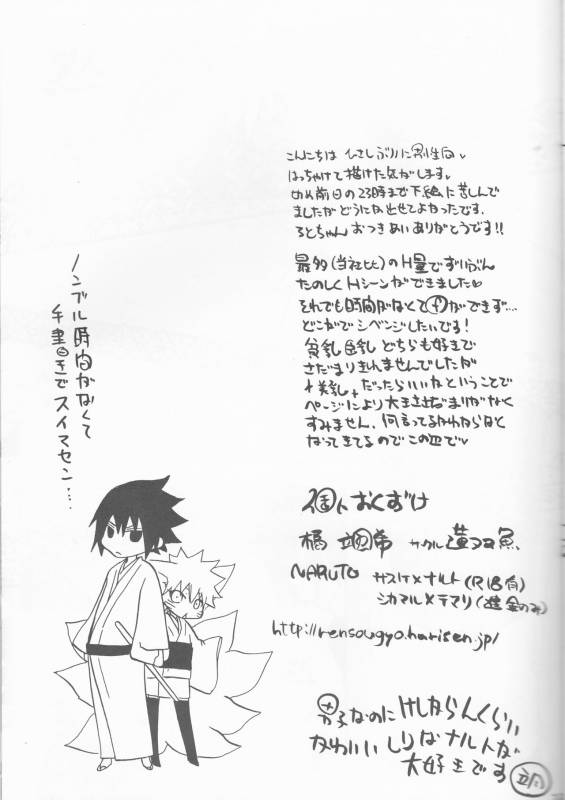 こんにちは ひさしぶりに男性向♥
はっちゃけて描けた気がします。
〆め前日の23時まで下絵に苦しんで
ましたがどうにか出せてよかったです。
るとちゃん おつきあいありがとうです!!
最多(当社比)のH量でずいぶん
たのしくHシーンができました♥
それでも時間がなくて ができず…
どこかでリベンジしたいです!
貧乳 乳 どちらも好きで
さだまりきれませんでしたが
美乳 だったらいいかということで
ページにより大きささだまりがなく
すみません、何言ってるかわからなく
なってきてるのでこの辺で♥
ノンブル時間がなくて
手書きでスイマセン…
個人おくずけ
橘 希 サークル 蓮双魚
NARUTO サスケ×ナルト(R18有)
シカマル×テマリ(健全のみ)
http://rensougyo.harisen.jp/
男子なのに けしからんくらい
かわいい しりなナルトが
大好きです